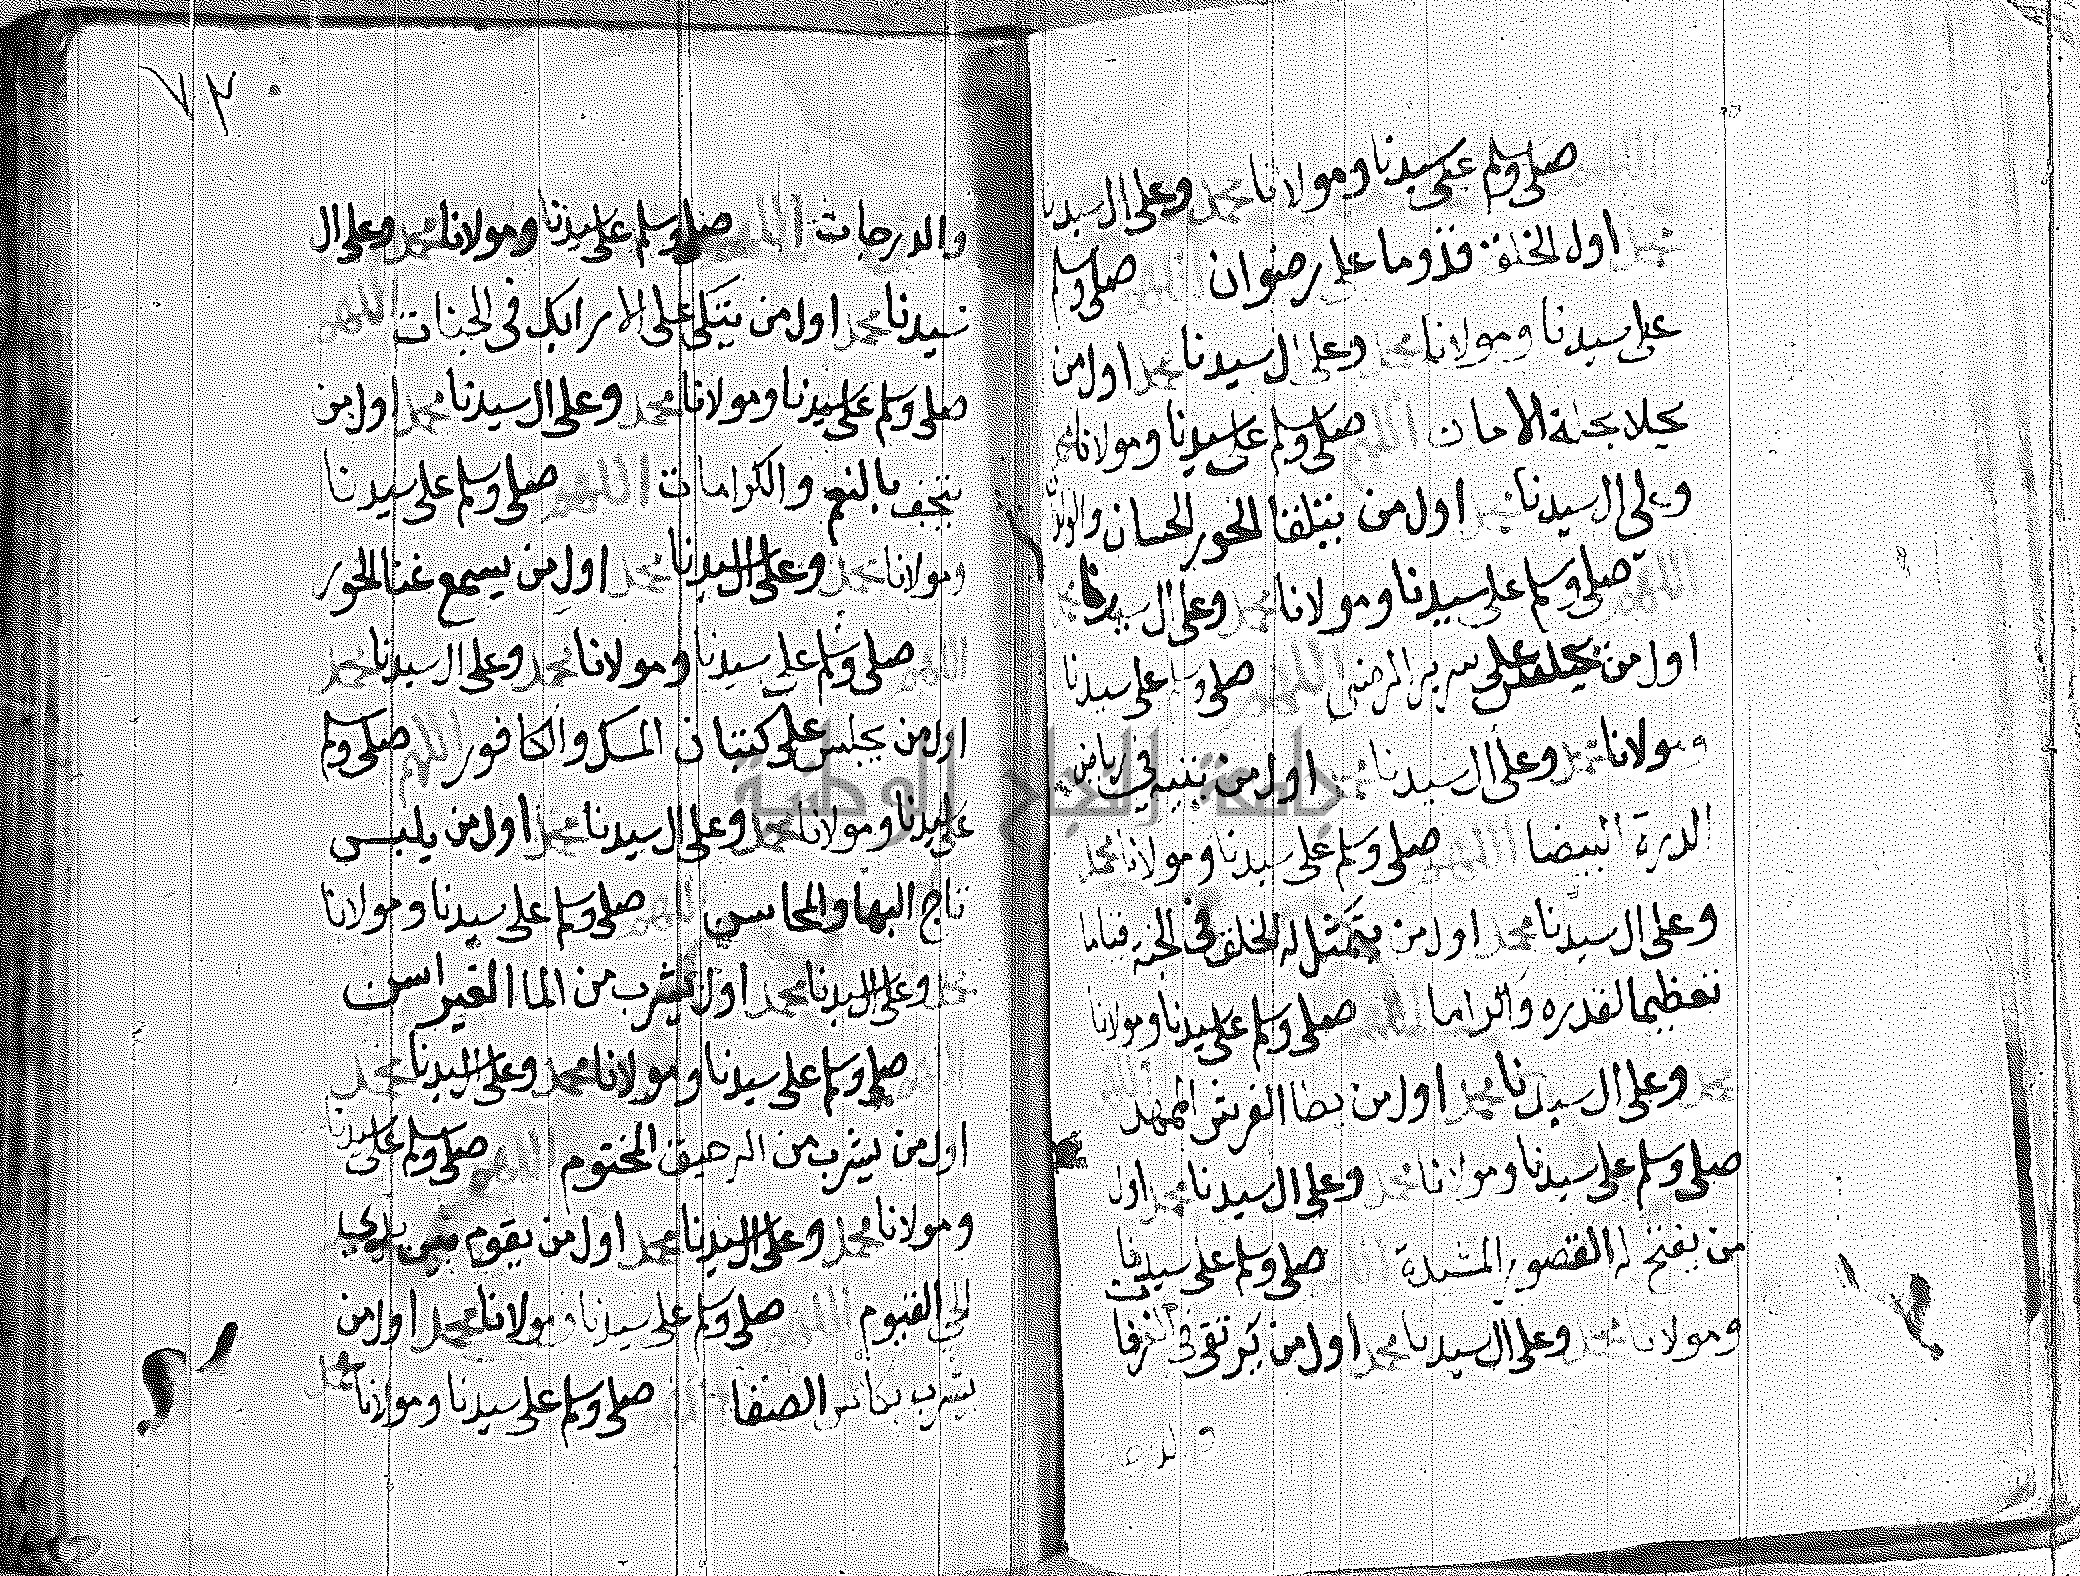 اللهم صلي وسلم على سيدنا ومولانا محمد وعلى ال سيدنا
محمد اول الخلق قدوما على رضوان اللهم صلي وسلم
على سيدنا ومولانا محمد وعلى ال سيدنا محمد اول من
يحلا بجنة الامان اللهم صلي وسلم على سيدنا ومولانا محمد
وعلى ال سيدنا محمد اول من يتلقا الحور الحسان والولدان
اللهم صلي وسلم على سيدنا ومولانا محمد وعلى ال سيدنا محمد
اول من على سرير الرضى اللهم صلي وسلم على سيدنا
ومولانا محمد وعلى ال سيدنا محمد اول من في رياض
الدرة البيضا اللهم صلي وسلم على سيدنا ومولانا محمد
وعلى ال سيدنا محمد اول من يتمثل له الخلق في الجنة قياما
تعظيما لقدره واكراما اللهم صلي وسلم على سيدنا ومولانا
محمد وعلى ال سيدنا محمد اول من يطا الفرش الممهدة اللهم
صلي وسلم على سيدنا ومولانا محمد وعلى ال سيدنا محمد اول
من يفتح له القصور المشيدة اللهم صلي وسلم على سيدنا
ومولانا محمد وعلى ال سيدنا محمد اول من يرتقى في الغرفات
والدرجات
٧٢
والدرجات اللهم صلي وسلم على سيدنا ومولانا محمد وعلى ال
سيدنا محمد اول من يتكى على الارايك في الجنات اللهم
صلي وسلم على سيدنا ومولانا محمد وعلى ال سيدنا محمد اول من
يتحف بالنعم والكرامات اللهم صلي وسلم على سيدنا
ومولانا محمد وعلى ال سيدنا محمد اول من يسمع غنا الحور
اللهم صلي وسلم على سيدنا ومولانا محمد وعلى ال سيدنا محمد
اول من يجلس على كتبان المسك والكافور اللهم صلي وسلم
على سيدنا ومولانا محمد وعلى ال سيدنا محمد اول من يلبس
تاج البها والمحاسن اللهم صلي وسلم على سيدنا ومولانا
محمد وعلى ال سيدنا محمد اول من يشرب من الما الغير اسن
اللهم صلي وسلم على سيدنا ومولانا محمد وعلى ال سيدنا محمد
اول من يشرب من الرحيق المختوم اللهم صلي وسلم على سيدنا
ومولانا محمد وعلى ال سيدنا محمد اول من يقوم بين يدي
الحي القيوم اللهم صلي وسلم على سيدنا ومولانا محمد اول من
يشرب بكاس الصفا اللهم صلي وسلم على سيدنا ومولانا محمد
جامعة النجاح الوطنية